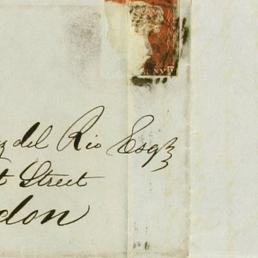 del Rio Esqr
Street
don